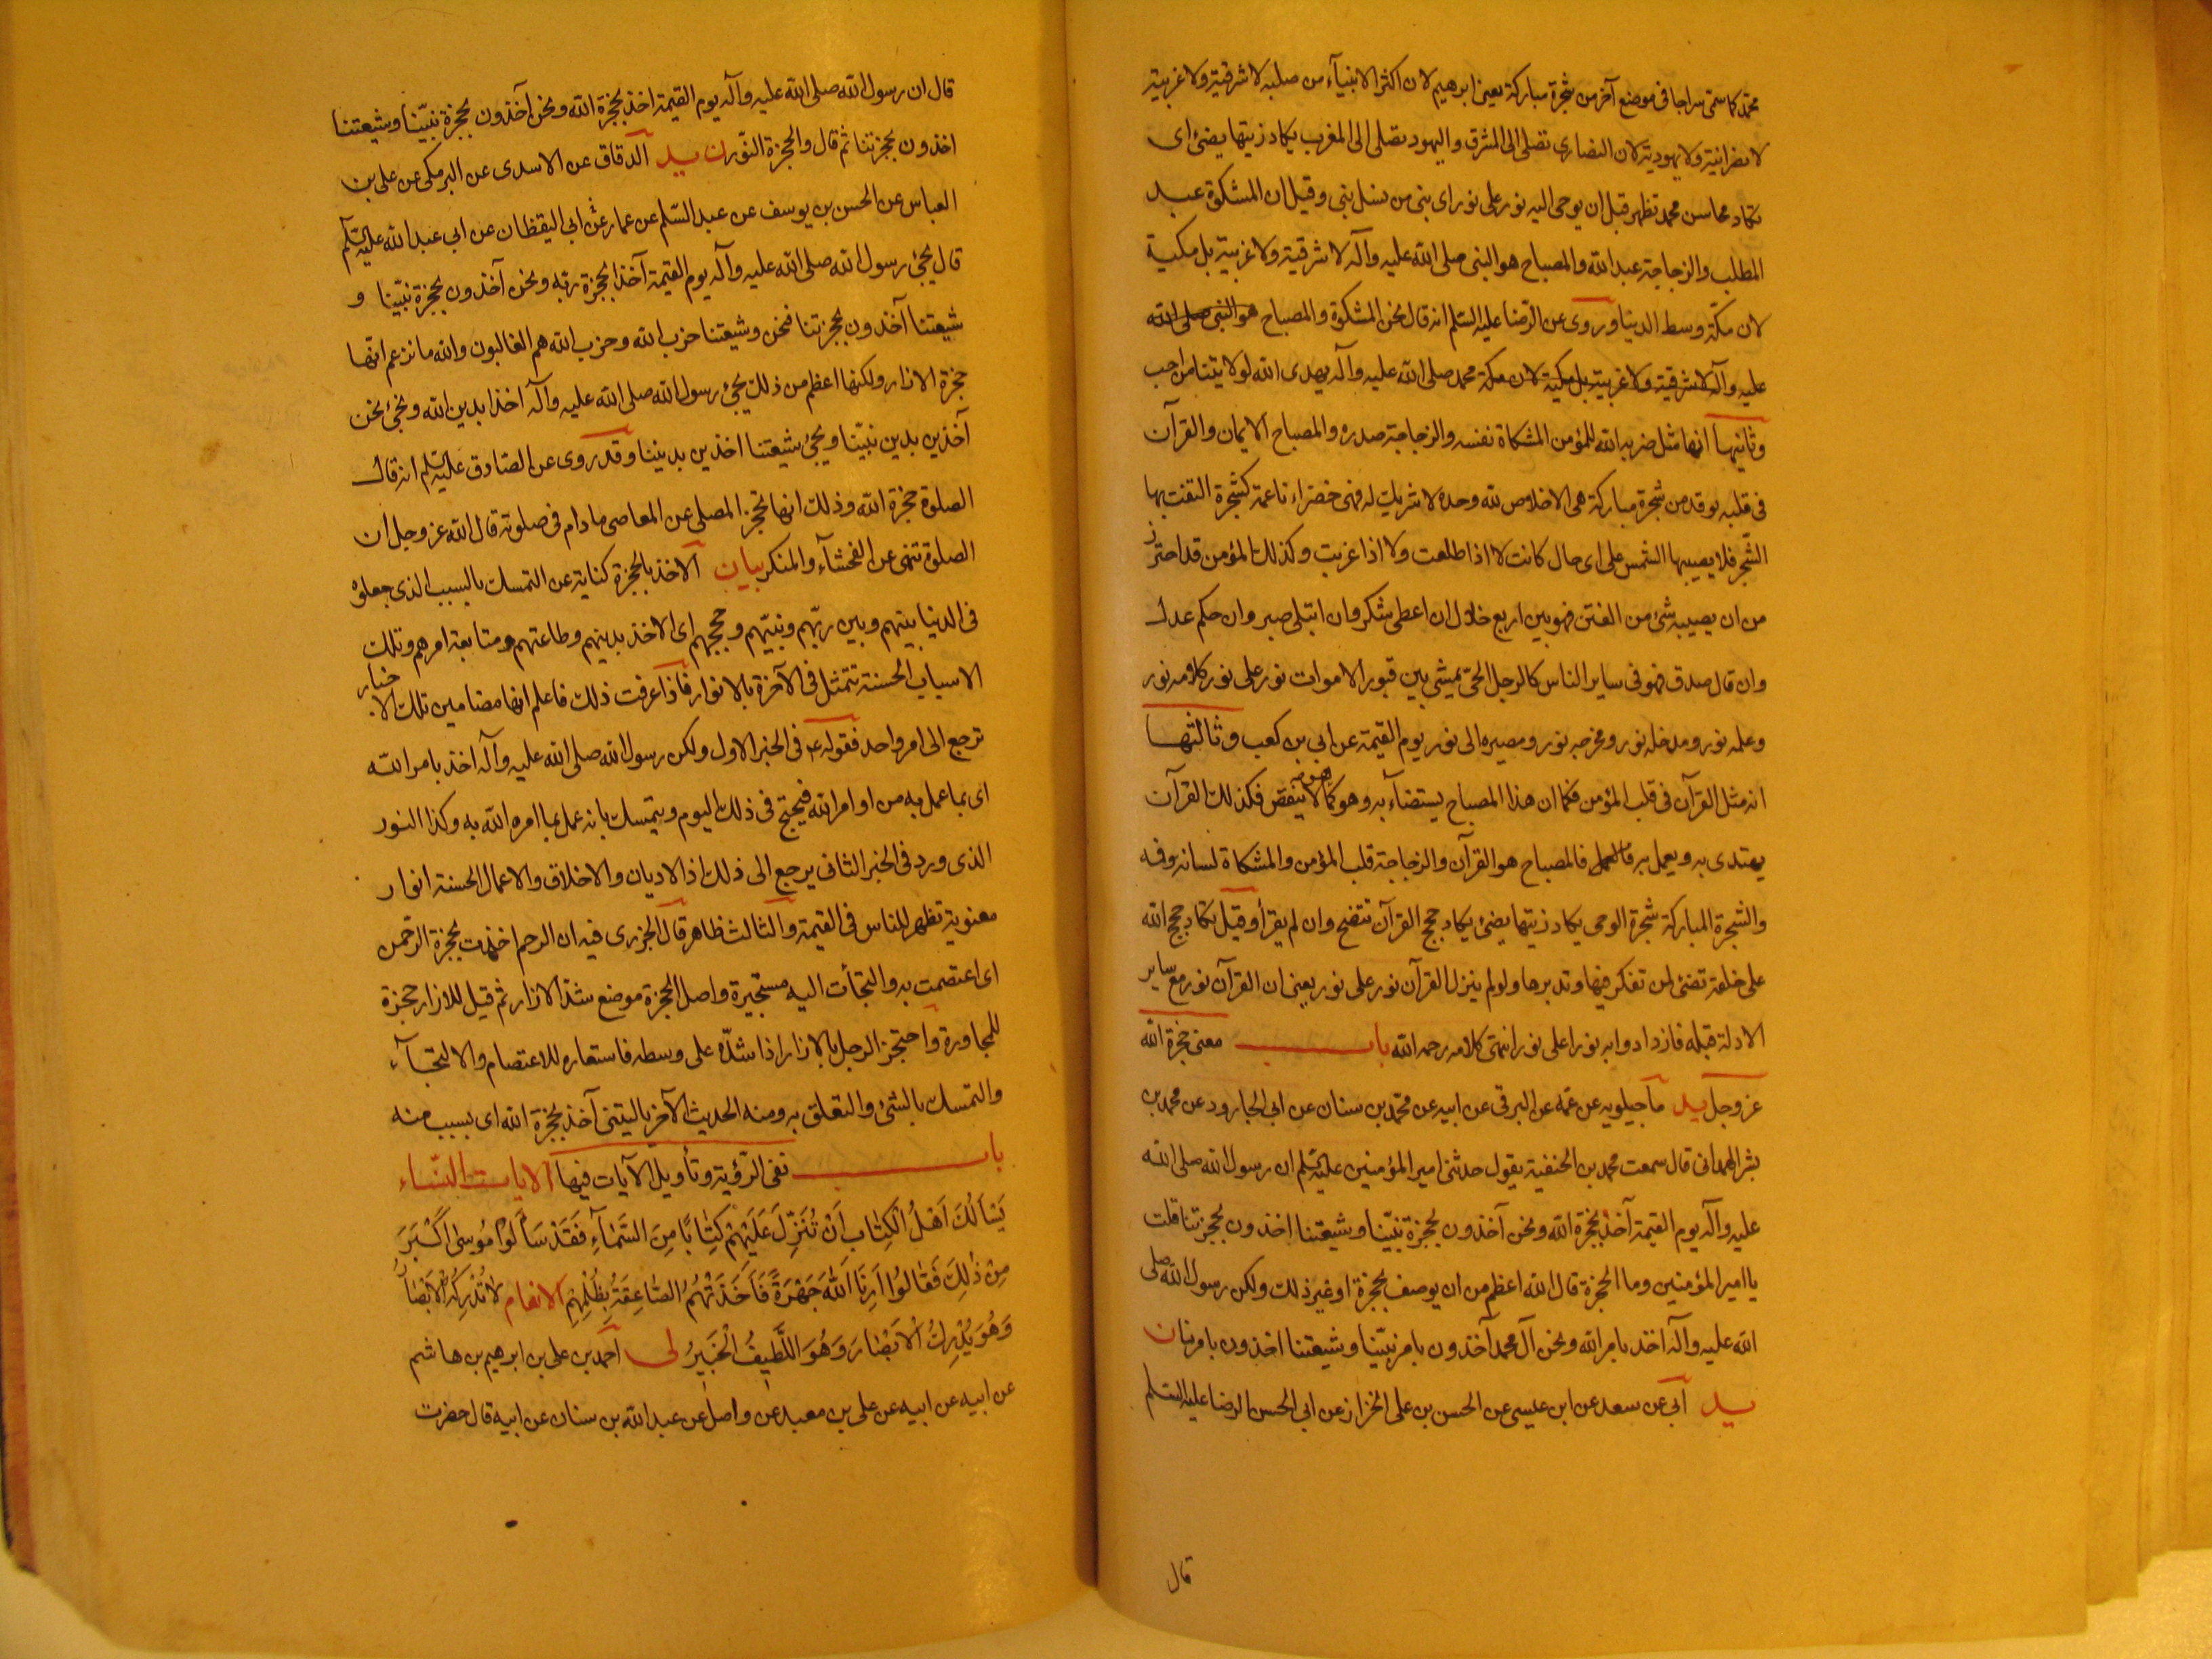 محمد كما سمّى سراجا فى موضع آخر من شجرة مباركة يعنى ابرهيم لان اكثر الانبيآء من صلبه لا شرقية ولا غربية
لا نصرانية ولا يهودية لان النصارى تصلى الى المشرق واليهود تصلى الى المغرب يكاد زيتها يضئ اى
تكاد محاسن محمد تظهر قبل ان يوحى اليه نور على نور اى نبى من نسل نبى وقيل ان المشكوة عبد
المطلب والزجاجة عبد الله والمصباح هو النبى صلى الله عليه وآله لا شرقية ولا غربية بل مكية
لان مكة وسط الدنيا وروى عن الرضا عليه السّلم انه قال نحن المشكوة والمصباح هو النبى صلى الله
عليه وآله لا شرقية ولا غربية بل مكية لان مكة محمد صلى الله عليه وآله يهدى الله لولايتنا من احب
وثانيها انها مثل ضربه الله للمؤمن المشكاة نفسه والزجاجة صدره والمصباح الايمان والقرآن
فى قلبه يوقد من شجرة مباركة هى الاخلاص لله وحده لا شريك له فهى خضراء ناعمة كشجرة التفت بها
الشجر فلا يصيبها الشمس على اى حال كانت لا اذا طلعت ولا اذا غربت وكذلك المؤمن قد احترز
من ان يصيبه شئ من الفتن فهو بين اربع خلال ان اعطى شكر وان ابتلى صبر وان حكم عدل
وان قال صدق فهو فى ساير الناس كالرجل الحىّ يمشى بين قبور الاموات نور على نور كلامه نور
وعلمه نور ومدخله نور ومخرجه نور ومصيره الى نور يوم القيمة عن ابى بن كعب وثالثها
انه مثل القرآن فى قلب المؤمن فكما ان هذا المصباح يستضآء به وهو كما هو لا ينقص فكذلك القرآن
يهتدى به ويعمل به فالمصباح هو القرآن والزجاجة قلب المؤمن والمشكاة لسانه وفمه
والشجرة المباركة شجرة الوحى يكاد زيتها يضئ يكاد حجج القرآن تتضح وان لم يقرأ وقيل تكاد حجج الله
على خلقه تضئ لمن تفكر فيها وتدبرها ولو لم ينزل القرآن نور على نور يعنى ان القرآن نور مع ساير
الادلة قبله فازدادوا به نورا على نور انتهى كلامه رحمه الله باب معنى حجزة الله
عز وجل يد ماجيلويه عن عمه عن البرقى عن ابيه عن محمّد بن سنان عن ابى الجارود عن محمد بن
بشر الهمدانى قال سمعت محمد بن الحنفية يقول حدثنى امير المؤمنين عليه السّلم ان رسول الله صلى الله
عليه وآله يوم القيمة آخذ بحجزة الله ونحن آخذون بحجزة نبيّنا وشيعتنا اخذون بحجزتنا قلت
يا امير المؤمنين وما الحجزة قال الله اعظم من ان يوصف بحجزة او غير ذلك ولكن رسول الله صلى
الله عليه وآله اخذ بامر الله ونحن آل محمد آخذون بامر نبيّنا وشيعتنا اخذون بامرنا ن
يد ابى عن سعد عن ابن عيسى عن الحسن بن على الخزاز عن ابى الحسن الرضا عليه السّلم
قال
قال ان رسول الله صلى الله عليه وآله يوم القيمة اخذ بحجزة الله ونحن آخذون بحجزة نبيّنا وشيعتنا
اخذون بحجزتنا ثم قال والحجزة النّور ن يد الدقاق عن الاسدى عن البرمكى عن على بن
العباس عن الحسن بن يوسف عن عبد السّلم عن عمار عن ابى اليقظان عن ابى عبد الله عليه السّلم
قال يجئ رسول الله صلى الله عليه وآله يوم القيمة آخذا بحجزة ربه ونحن آخذون بحجزة نبيّنا و
شيعتنا آخذون بحجزتنا فنحن وشيعتنا حزب الله وحزب الله هم الغالبون والله ما نزعم انّها
حجزة الازار ولكنها اعظم من ذلك يجئ رسول الله صلى الله عليه وآله اخذا بدين الله ونجئ نحن
آخذين بدين نبيّنا ويجئ شيعتنا اخذين بديننا وقد روى عن الصّادق عليه السّلم انه قال
الصلوة حجزة الله وذلك انها تحجز المصلى عن المعاصى ما دام فى صلوته قال الله عز وجل ان
الصلوة تنهى عن الفحشآء والمنكر بيان الاخذ بالحجزة كناية عن التمسك بالسبب الذى جعلوه
فى الدنيا بينهم وبين ربّهم ونبيّهم وحججهم اى الاخذ بدينهم وطاعتهم ومتابعة امرهم وتلك
الاسباب الحسنة تتمثل فى الآخرة بالانوار فاذا عرفت ذلك فاعلم ان مضامين تلك الاخبار
ترجع الى امر واحد فقوله ع فى الخبر الاول ولكن رسول الله صلى الله عليه وآله اخذ بامر الله
اى بما عمل به من اوامر الله فيحتج فى ذلك اليوم ويتمسك بانه عمل بما امره الله به وكذا النور
الذى ورد فى الخبر الثانى يرجع الى ذلك اذ الاديان والاخلاق والاعمال الحسنة انوار
معنوية تظهر للناس فى القيمة والثالث ظاهر قال الجزرى فيه ان الرحم اخذت بحجزة الرّحمن
اى اعتصمت به والتجأت اليه مستجيرة واصل الحجزة موضع شدّ الازار ثم قيل للازار حجزة
للمجاورة واحتجز الرجل بالازار اذا شدّه على وسطه فاستعاره للاعتصام والالتجآء
والتمسك بالشئ والتعلق به ومنه الحديث الآخر يا ليتنى آخذ بحجزة الله اى بسبب منه
باب نفى الرّؤية وتأويل الآيات فيها الايات النّساء
يَسْأَلُكَ اَهْلُ الْكِتٰابِ اَنْ تُنَزِّلَ عَلَيْهِمْ كِتٰابًا مِنَ السَّمٰآءِ فَقَدْ سَأَلُوا مُوسٰى اَكْبَرَ
مِنْ ذٰلِكَ فَقٰالُوا اَرِنَا اللّٰهَ جَهْرَةً فَاَخَذَتْهُمُ الصّٰاعِقَةُ بِظُلْمِهِمْ الانعام لاٰ تُدْرِكُهُ الْاَبْصٰارُ
وَهُوَ يُدْرِكُ الْاَبْصٰارَ وَهُوَ اللَّطِيفُ الْخَبِيرُ لى احمد بن على بن ابرهيم بن هاشم
عن ابيه عن ابيه عن على بن معبد عن واصل عن عبد الله بن سنان عن ابيه قال حضرت